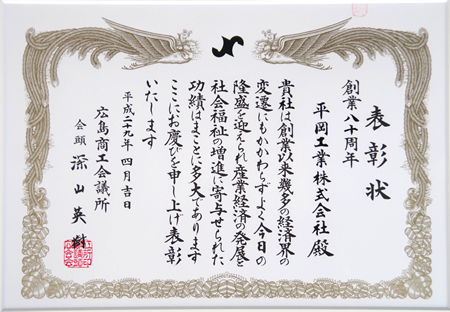 表彰状
創業八十周年
平岡工業株式会社殿
貴社は創業以来幾多の経済界の
変遷にもかかわらずよく今日の
隆盛を迎えられ産業経済の発展と
社会福祉の増進に寄与せられた
功績はまことに多大であります
ここにお慶びを申し上げ表彰
いたします
平成二十九年四月吉日
広島商工会議所
会頭 深山英樹